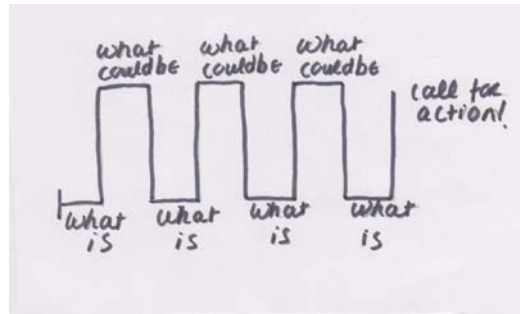 what
couldbe
what
couldbe
what
couldbe
call for
action!
what
is
what
is
what
is
what
is